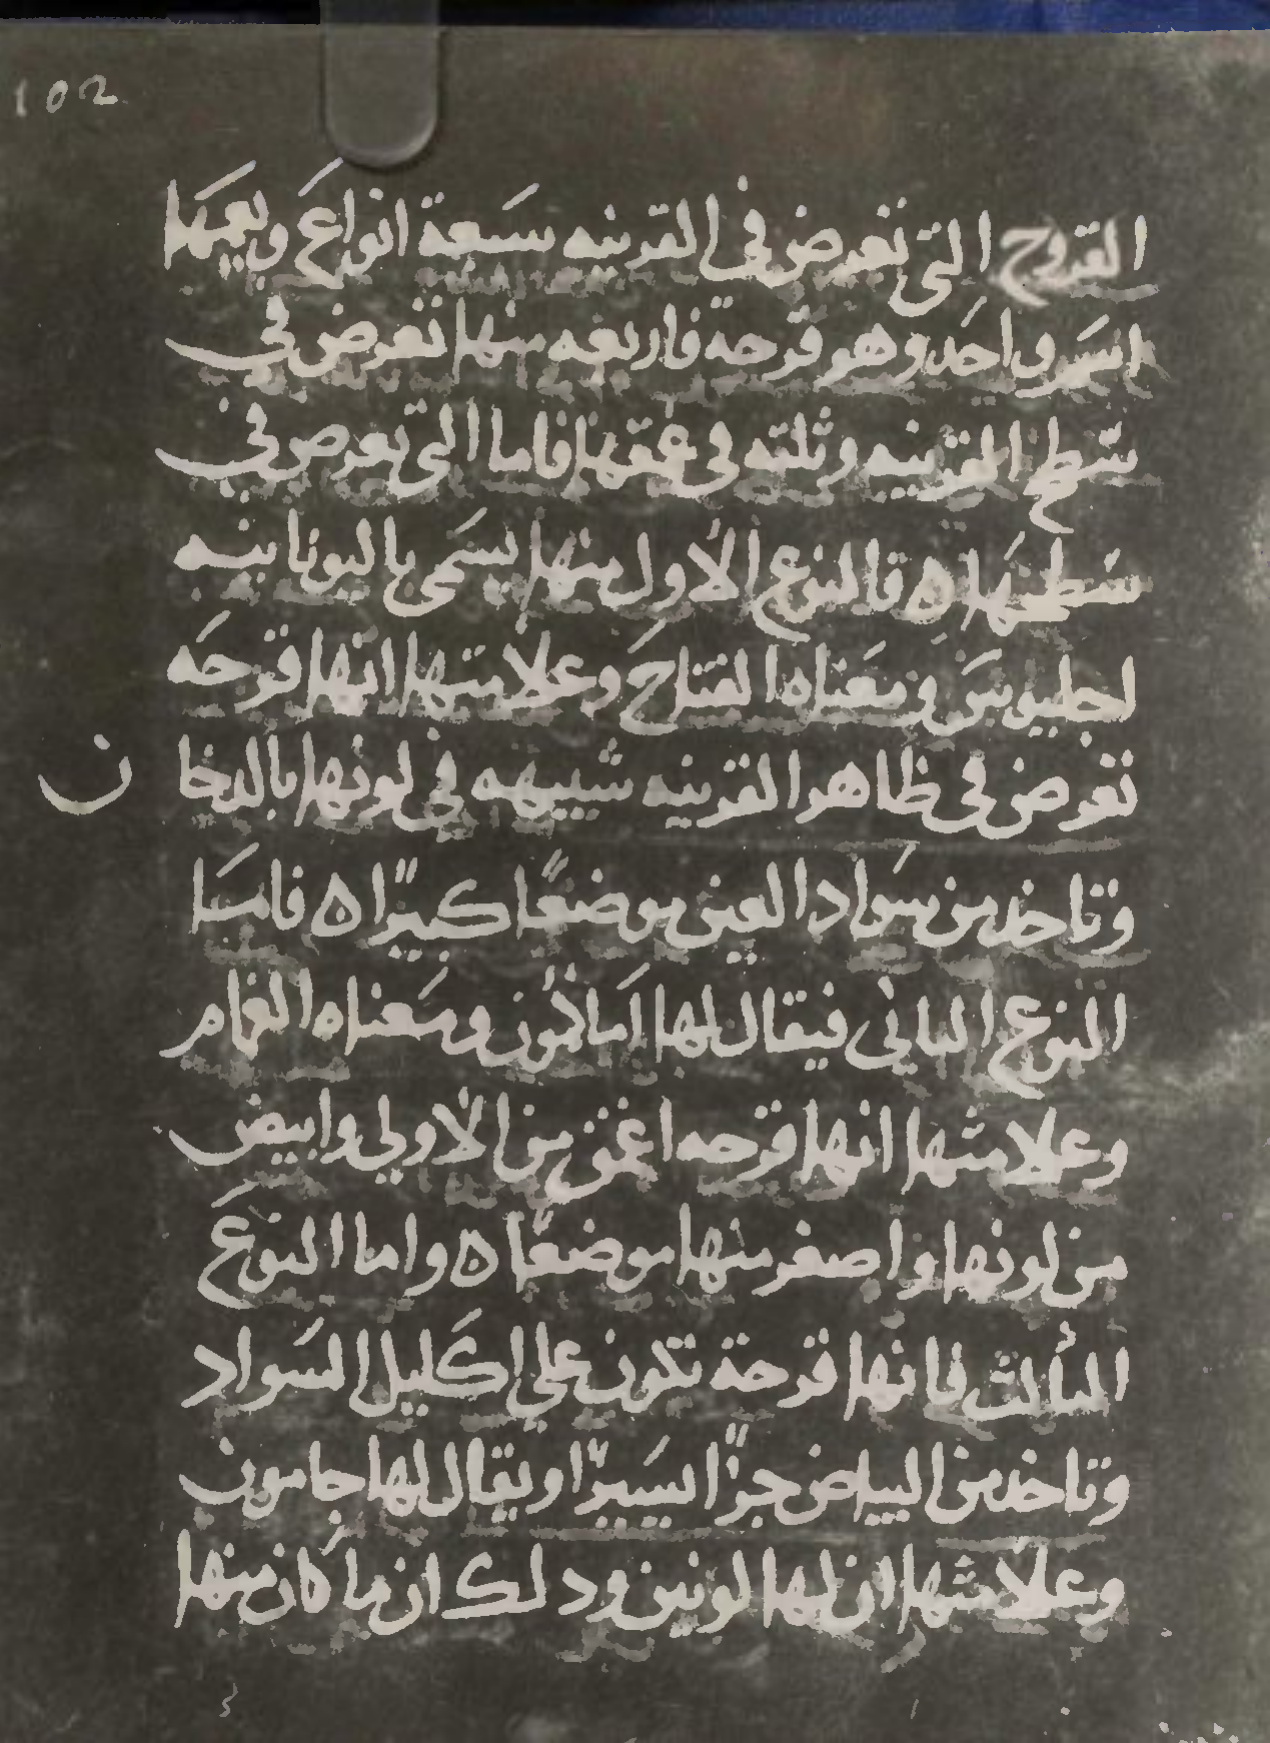 102
القروح التى تعرض فى القرنيه سبعة انواع ويعمها
اسم واحد وهو قرحة فاربعه منها تعرض فى
سطح القرنيه وثلثه فى عمقها فاما التى تعرض فى
سطحها ه فالنوع الاول منها يسمى باليونانيه
اجليوس ومعناه القتام وعلامتها انها قرحه
تعرض فى ظاهر القرنيه شبيهه فى لونها بالدخا
ن
وتاخد من سواد العين موضعًا كبيرًا ه فاما
النوع الثانى فيقال لها ومعناه الغمام
وعلامتها انها قرحه اعمق من الاولى وابيض
من لونها واصغر منها موضعًا ه واما النوع
الثالث فانها قرحة تكون على اكليل السواد
وتاخد من البياض جزًا يسيرًا ويقال لها جامون
وعلامتها ان لها لونين ودلك ان ما كان منها